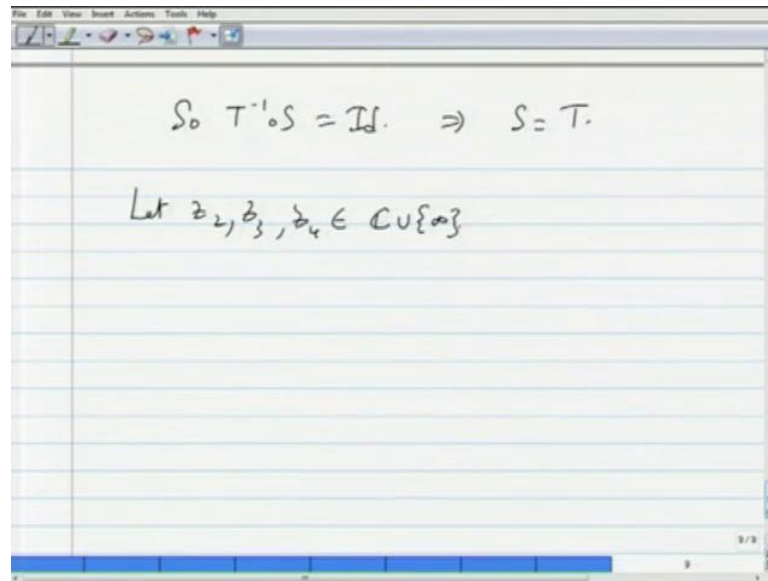 File Edit View Insert Actions Tools Help
So T⁻¹∘S = Id. ⇒ S = T.
Let z₂, z₃, z₄ ∈ ℂ∪{∞}
9/9
9